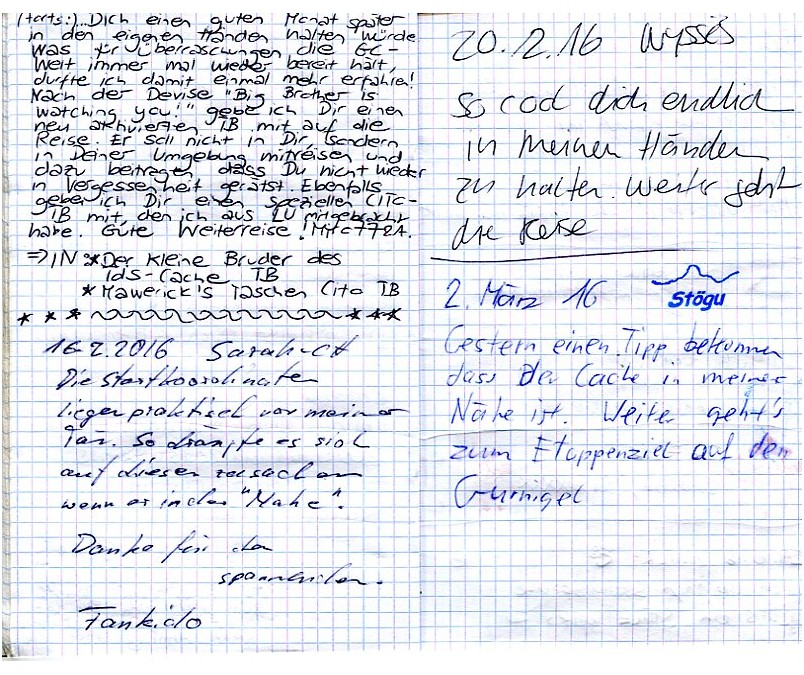 (forts.:) Dich einen guten Monat später
in den eigenen Händen halten würde
Was für Überraschungen die GC-
Welt immer mal wieder bereit hält,
durfte ich damit einmal mehr erfahren!
Nach der Devise "Big Brother is
watching you!" gebe ich Dir einen
neu aktivierten TB mit auf die
Reise. Er soll nicht in Dir, sondern
in Deiner Umgebung mitreisen und
dazu beitragen, dass Du nicht wieder
in Vergessenheit gerätst. Ebenfalls
gebe ich Dir einen speziellen CITO-
TB mit, den ich aus LU mitgebracht
habe. Gute Weiterreise!
=> IN * Der kleine Bruder des
Ids-Cache TB
* Mawerick's Taschen Cito TB
16.2.2016 Sarah-CH
Die Startkoordinaten
liegen praktisch vor meiner
Tür. So drängte es sich
auf diesen zu suchen
wenn er in der "Nähe".
Danke für den
spannenden.
Fankido
20.2.16 Wysses
So cool dich endlich
in meinen Händen
zu halten. Weiter geht
die Reise
2. März 16 Stögu
Gestern einen Tipp bekommen
dass der Cache in meiner
Nähe ist. Weiter geht's
zum Etappenziel auf dem
Gurnigel